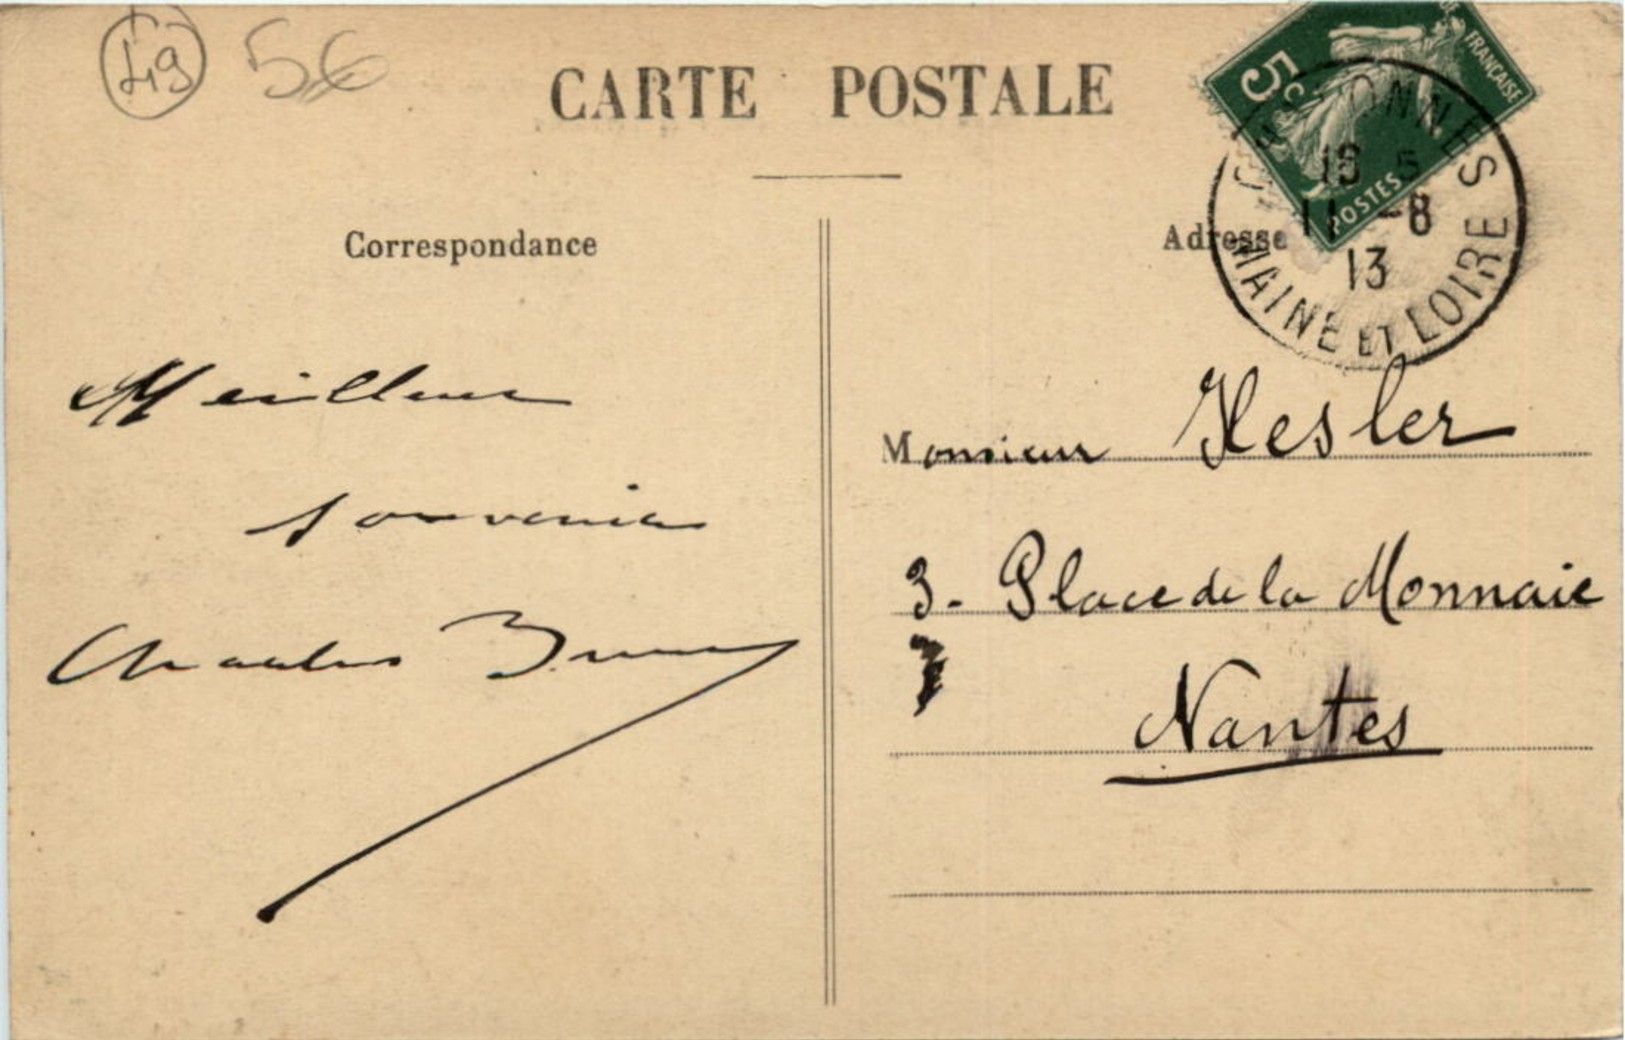 49 56
CARTE POSTALE
5c
FRANÇAISE
POSTES
18 5
11 -8
13
MAINE ET LOIRE
Correspondance
Adresse
Meilleurs
souvenirs
Charles
Monsieur Kesler
3- Place de la Monnaie
Nantes